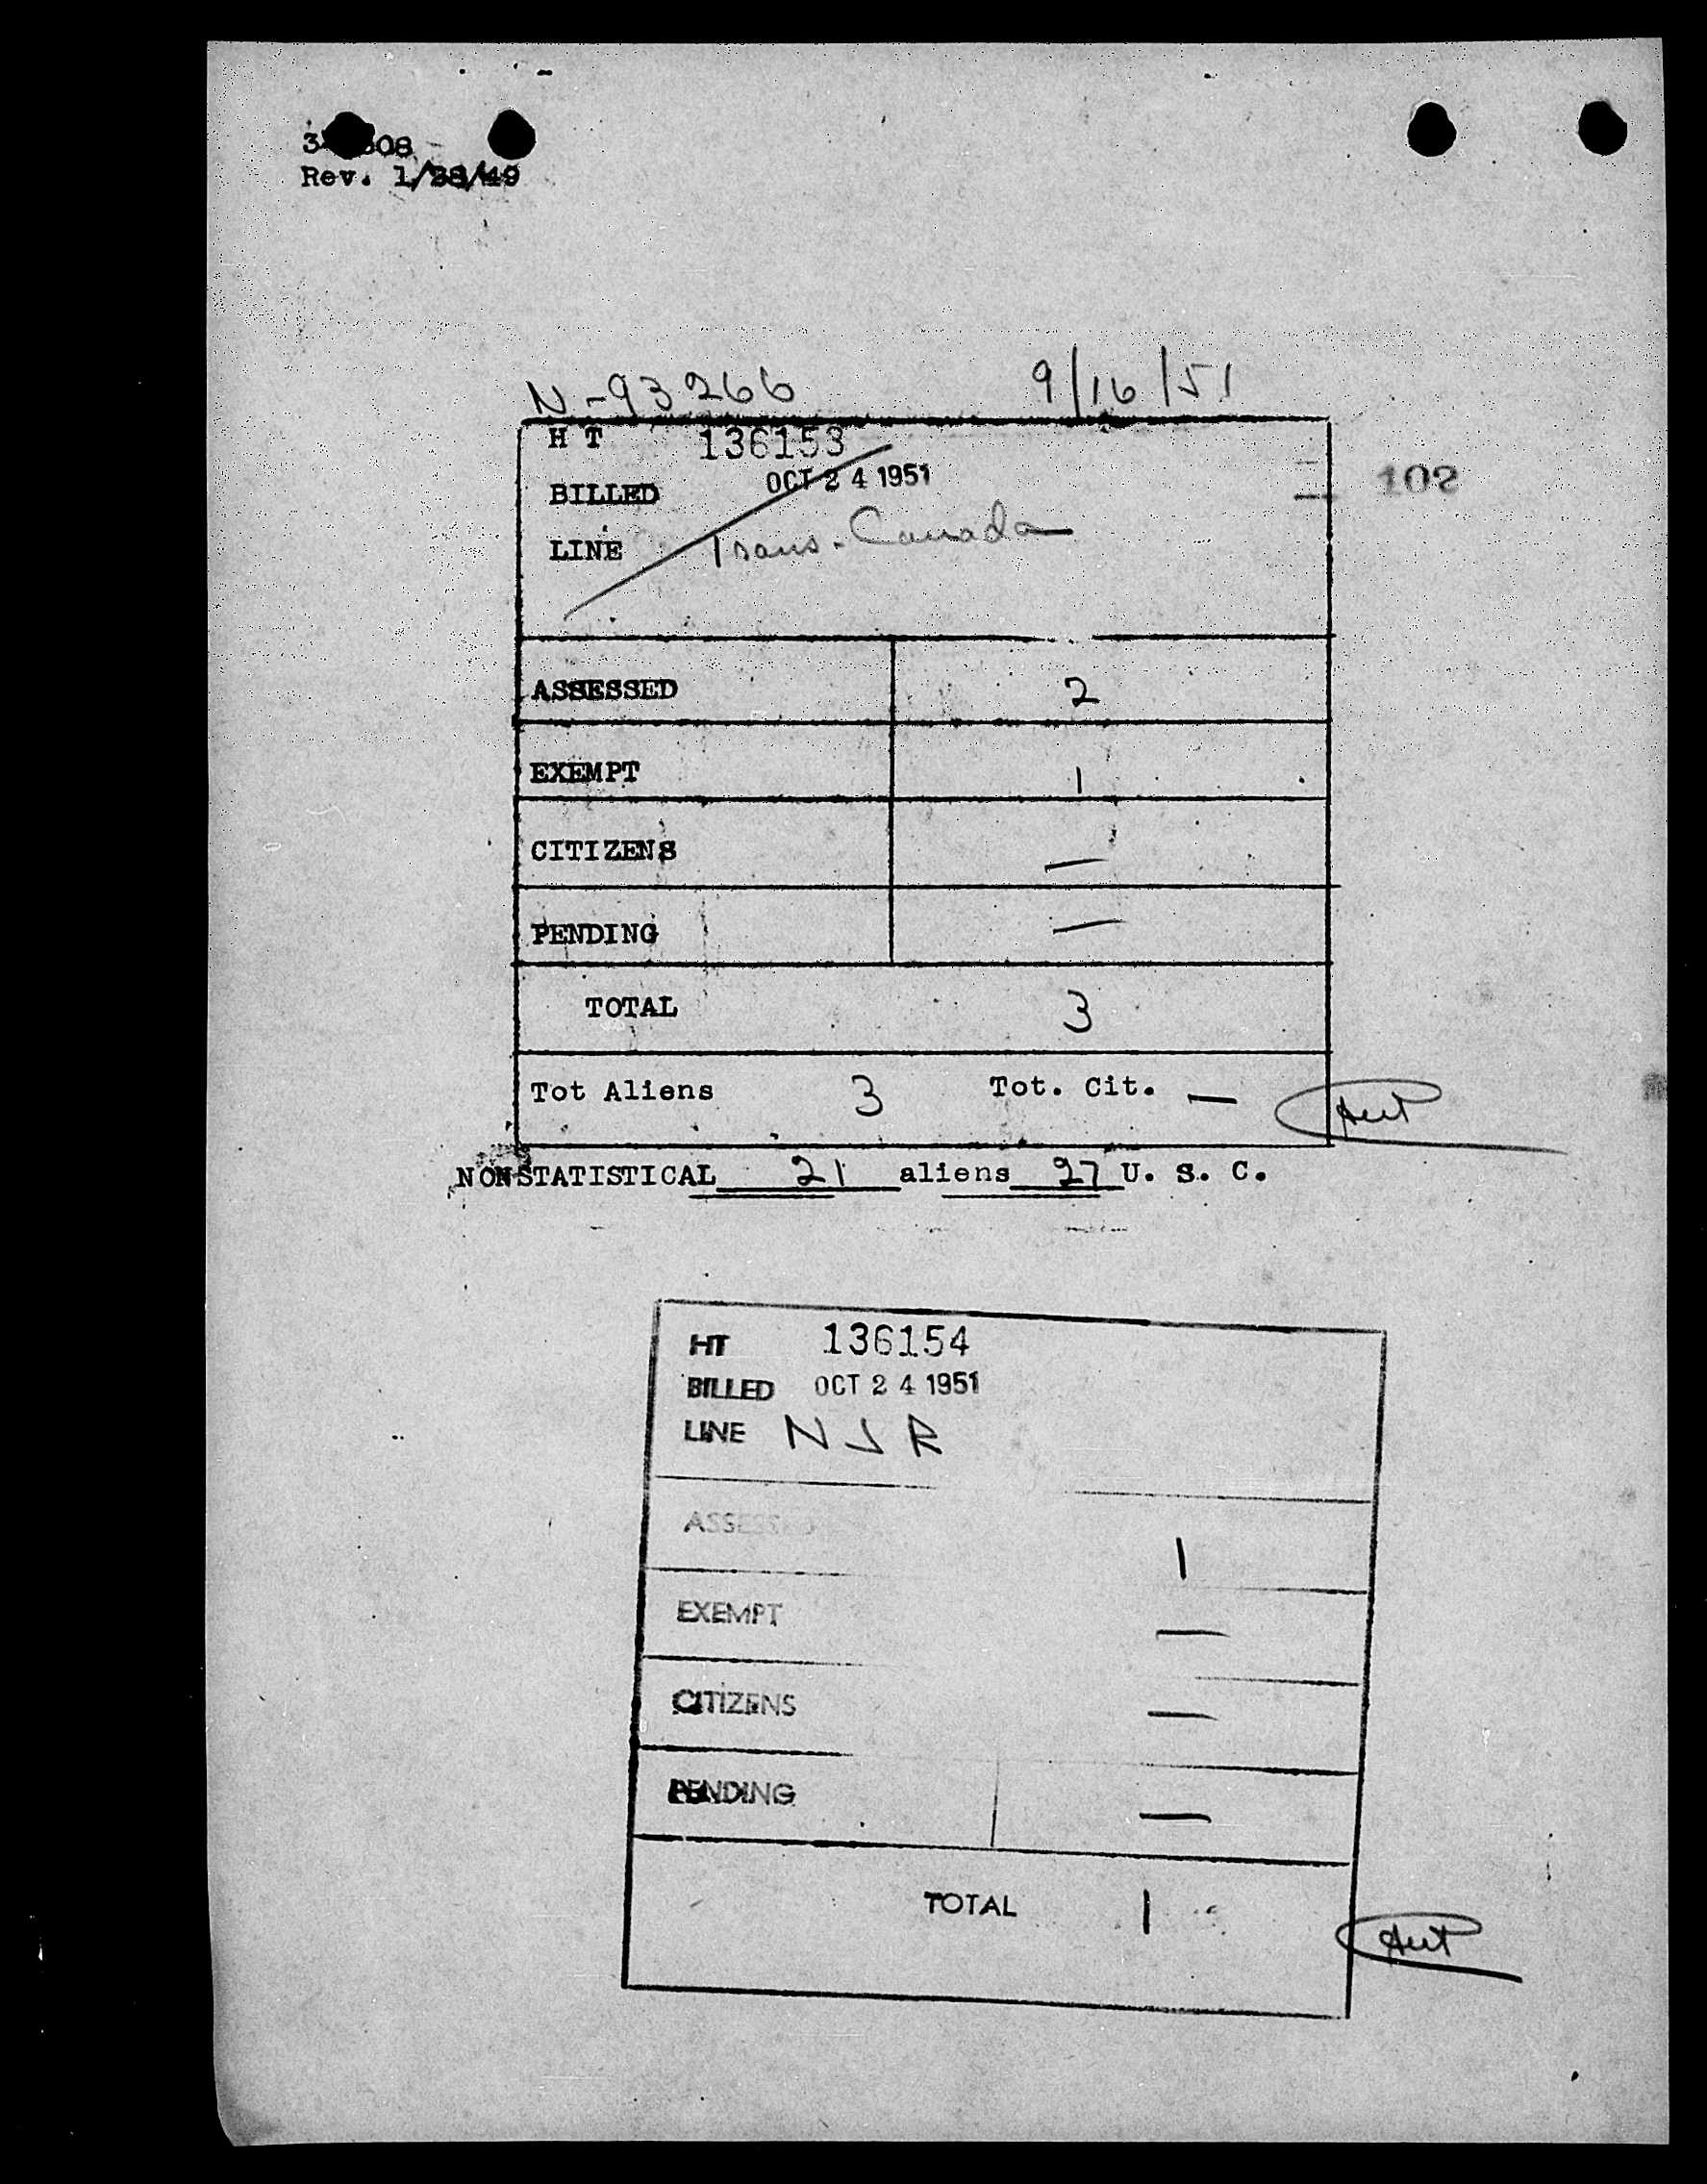 Rev. 1/28/49
N-93266 9/16/51
H T 136153
BILLED OCT 24 1951
LINE Trans-Canada
102
ASSESSED 2
EXEMPT 1
CITIZENS —
PENDING —
TOTAL 3
Tot Aliens 3 Tot. Cit. —
NONSTATISTICAL 21 aliens 27 U. S. C.
HT 136154
BILLED OCT 24 1951
LINE
ASSESSED 1
EXEMPT —
CITIZENS —
PENDING —
TOTAL 1